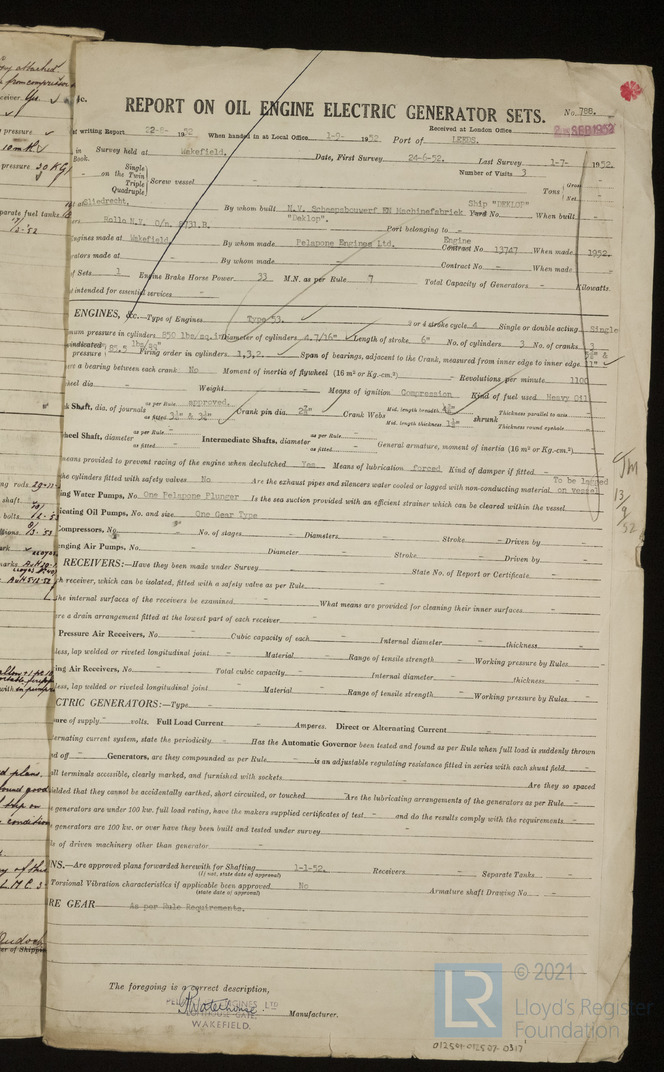 &c.
REPORT ON OIL ENGINE ELECTRIC GENERATOR SETS.
No. 788.
Received at London Office
SEP 1952
of writing Report 22-8- 1952 When handed in at Local Office 1-9- 1952 Port of LEEDS.
in Book. Survey held at Wakefield. Date, First Survey 24-6-52. Last Survey 1-7- 1952.
Number of Visits 3
on the Single Twin Triple Quadruple Screw vessel Tons Gross Net
Sliedrecht. By whom built N.V. Scheepsbouwerf EN Machinefabriek Ship "DEKLOP" Yard No. When built
"Deklop".
Rollo N.V. O/n. 8731.R. Port belonging to -
Engines made at Wakefield. By whom made Pelapone Engines Ltd. Engine Contract No. 13747 When made 1952.
made at - By whom made - Contract No. - When made -
of Sets 1 Engine Brake Horse Power 33 M.N. as per Rule 7 Total Capacity of Generators - Kilowatts.
intended for essential services -
ENGINES, &c.—Type of Engines Type 53. 2 or 4 stroke cycle 4 Single or double acting Single
pressure in cylinders 850 lbs/sq.in Diameter of cylinders 4.7/16" Length of stroke 6" No. of cylinders 3 No. of cranks 3
indicated pressure 85.5 lbs/sq" Firing order in cylinders 1,3,2. Span of bearings, adjacent to the Crank, measured from inner edge to inner edge
a bearing between each crank No Moment of inertia of flywheel (16 m² or Kg.-cm.²) - Revolutions per minute 1100
wheel dia - Weight - Means of ignition Compression Kind of fuel used Heavy Oil
Shaft, dia. of journals as per Rule approved. as fitted Crank pin dia. Crank Webs Mid. length breadth Mid. length thickness shrunk Thickness parallel to axis Thickness round eyehole
wheel Shaft, diameter as per Rule - as fitted - Intermediate Shafts, diameter as per Rule - as fitted - General armature, moment of inertia (16 m² or Kg.-cm.²)
means provided to prevent racing of the engine when declutched Yes Means of lubrication forced Kind of damper if fitted -
the cylinders fitted with safety valves No Are the exhaust pipes and silencers water cooled or lagged with non-conducting material To be lagged on vessel
Water Pumps, No. One Pelapone Plunger Is the sea suction provided with an efficient strainer which can be cleared within the vessel
Oil Pumps, No. and size One Gear Type
Compressors, No. No. of stages - Diameters - Stroke - Driven by -
Air Pumps, No. - Diameter - Stroke - Driven by -
RECEIVERS:—Have they been made under Survey - State No. of Report or Certificate -
receiver, which can be isolated, fitted with a safety valve as per Rule -
the internal surfaces of the receivers be examined - What means are provided for cleaning their inner surfaces -
a drain arrangement fitted at the lowest part of each receiver -
Pressure Air Receivers, No. - Cubic capacity of each - Internal diameter - thickness -
less, lap welded or riveted longitudinal joint - Material - Range of tensile strength - Working pressure by Rules -
Air Receivers, No. - Total cubic capacity - Internal diameter - thickness -
less, lap welded or riveted longitudinal joint - Material - Range of tensile strength - Working pressure by Rules -
CTRIC GENERATORS:—Type -
of supply - volts. Full Load Current - Amperes. Direct or Alternating Current -
ternating current system, state the periodicity - Has the Automatic Governor been tested and found as per Rule when full load is suddenly thrown
off - Generators, are they compounded as per Rule - is an adjustable regulating resistance fitted in series with each shunt field -
all terminals accessible, clearly marked, and furnished with sockets - Are they so spaced
ielded that they cannot be accidentally earthed, short circuited, or touched - Are the lubricating arrangements of the generators as per Rule -
generators are under 100 kw. full load rating, have the makers supplied certificates of test - and do the results comply with the requirements -
generators are 100 kw. or over have they been built and tested under survey -
of driven machinery other than generator -
NS.—Are approved plans forwarded herewith for Shafting 1-1-52. Receivers - Separate Tanks -
(If not, state date of approval)
Torsional Vibration characteristics if applicable been approved No Armature shaft Drawing No. -
(state date of approval)
RE GEAR As per Rule Requirements.
The foregoing is a correct description,
ENGINES LTD
Waterhouse
WAKEFIELD.
Manufacturer.
13/9/52
© 2021
LR
Lloyd's Register
Foundation
012501-012507-0317